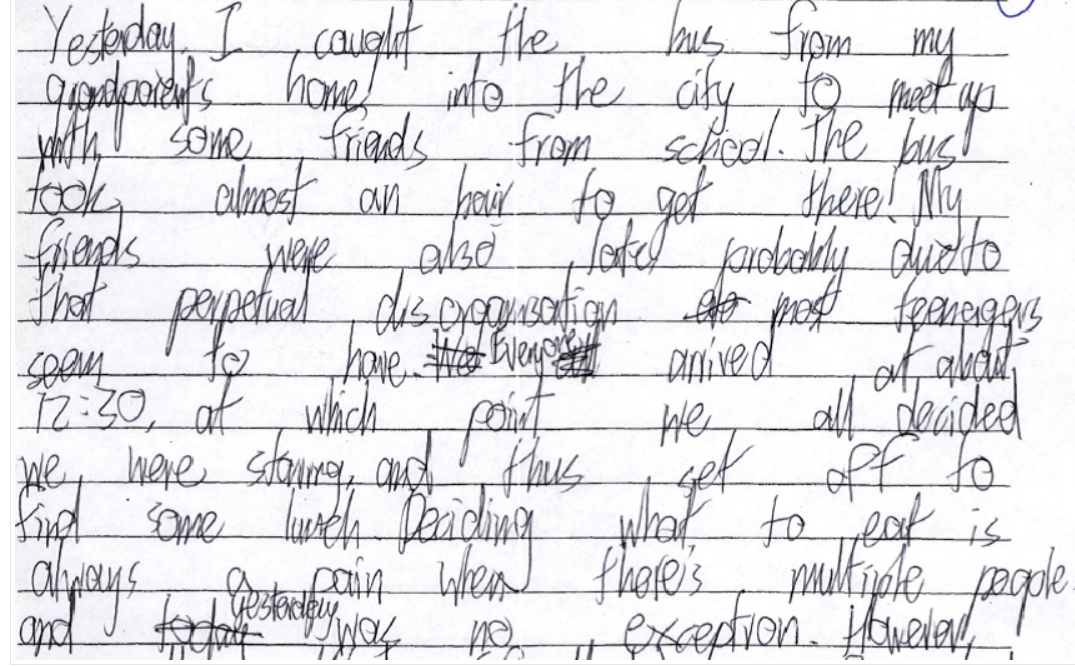 Yesterday, I caught the bus from my
grandparent's home, into the city to meet up
with some friends from school. The bus
took almost an hour to get there! My
friends were also late, probably due to
that perpetual disorganisation most teenagers
seem to have. Everyone arrived at about
12:30, at which point we all decided
we were starving, and thus set off to
find some lunch. Deciding what to eat is
always a pain when there's multiple people
and yesterday was no exception. However,